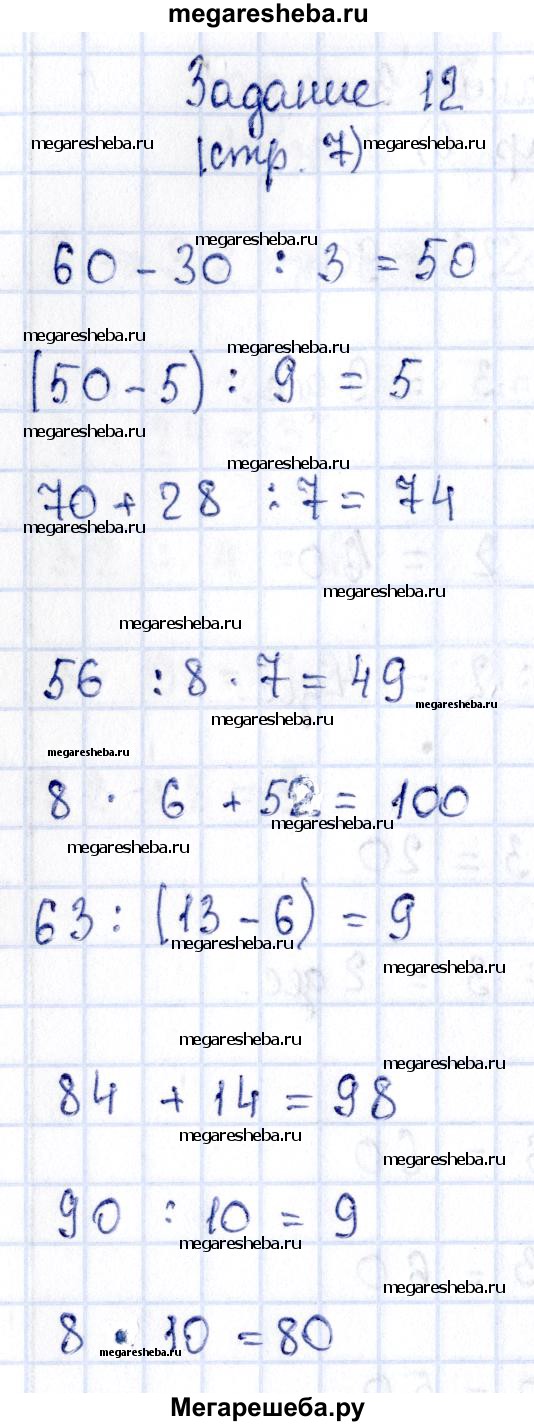 megaresheba.ru
Задание 12
megaresheba.ru (стр. 7) megaresheba.ru
megaresheba.ru
60 - 30 : 3 = 50
megaresheba.ru
megaresheba.ru
(50 - 5) : 9 = 5
megaresheba.ru
megaresheba.ru
70 + 28 : 7 = 74
megaresheba.ru
megaresheba.ru
megaresheba.ru
56 : 8 · 7 = 49
megaresheba.ru
megaresheba.ru
megaresheba.ru
8 · 6 + 52 = 100
megaresheba.ru
megaresheba.ru
63 : (13 - 6) = 9
megaresheba.ru
megaresheba.ru
megaresheba.ru
megaresheba.ru
84 + 14 = 98
megaresheba.ru
megaresheba.ru
90 : 10 = 9
megaresheba.ru
megaresheba.ru
8 · 10 = 80
megaresheba.ru
megaresheba.ru
Мегарешеба.ру